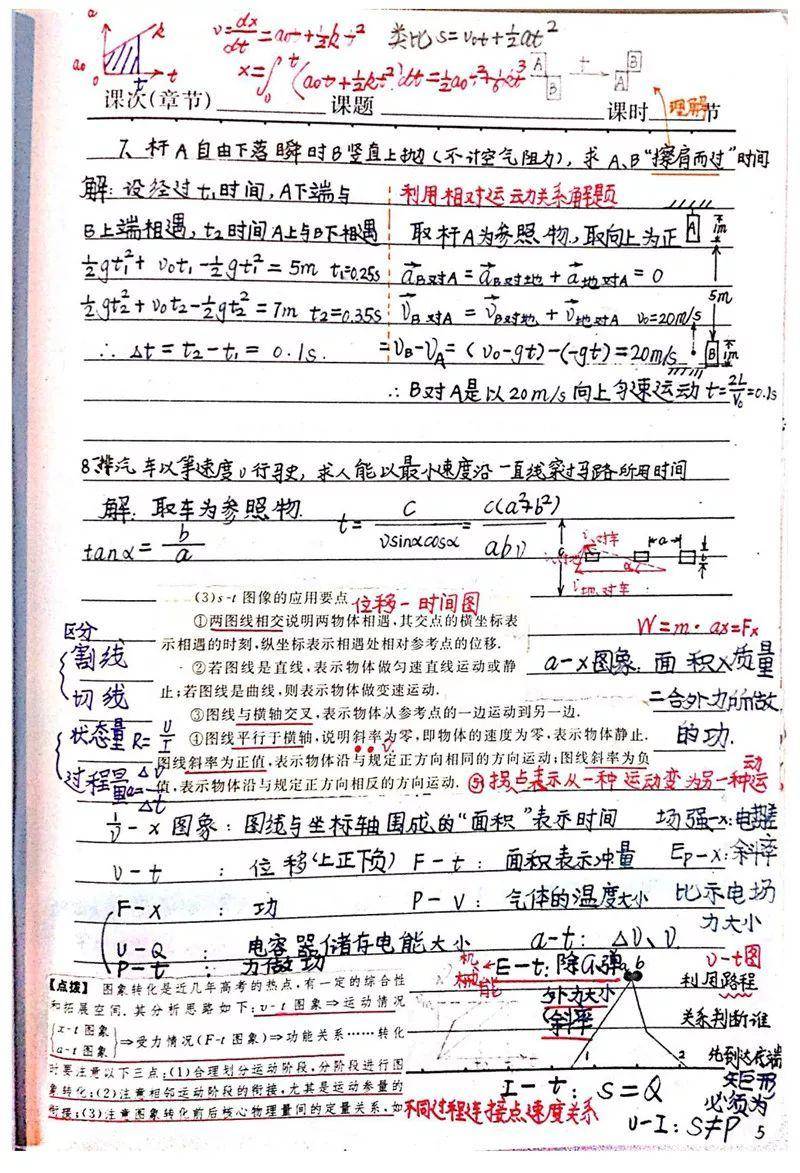 a
k
a₀
0
t
t
v=dx/dt=a₀t+½kt² 类比 s=v₀t+½at²
x=∫₀ᵗ(a₀t+½kt²)dt=½a₀t²+⅙kt³
A B t A B
课次(章节) 课题 课时 理解 节
7、杆A自由下落瞬时B竖直上抛(不计空气阻力),求A、B"擦肩而过"时间
解:设经过t₁时间,A下端与
B上端相遇,t₂时间A上与B下相遇
½gt₁²+v₀t₁-½gt₁²=5m t₁=0.25s
½gt₂²+v₀t₂-½gt₂²=7m t₂=0.35s
∴Δt=t₂-t₁=0.1s.
利用相对运动关系解题
取杆A为参照物,取向上为正
a⃗B对A=a⃗B对地+a⃗地对A=0
v⃗B对A=v⃗B对地+v⃗地对A v₀=20m/s
=vB-vA=(v₀-gt)-(-gt)=20m/s
∴B对A是以20m/s向上匀速运动 t=2L/v₀=0.1s
A 1m
5m
B 1m
8、排汽车以等速度v行驶,求人能以最小速度沿一直线穿过马路所用时间
解:取车为参照物.
t=c/(vsinαcosα)=c(a²+b²)/(abv)
tanα=b/a
c
a
b
α
v地对车
(3)s-t图像的应用要点 位移-时间图
①两图线相交说明两物体相遇,其交点的横坐标表
示相遇的时刻,纵坐标表示相遇处相对参考点的位移.
②若图线是直线,表示物体做匀速直线运动或静
止;若图线是曲线,则表示物体做变速运动.
③图线与横轴交叉,表示物体从参考点的一边运动到另一边.
④图线平行于横轴,说明斜率为零,即物体的速度为零,表示物体静止.
图线斜率为正值,表示物体沿与规定正方向相同的方向运动;图线斜率为负
值,表示物体沿与规定正方向相反的方向运动. ⑤拐点表示从一种运动变为另一种运动
区分
割线
切线
状态量R=U/I
过程量a=Δv/Δt
W=m·ax=Fx
a-x图象:面积×质量
=合外力所做
的功.
1/v-x图象:图线与坐标轴围成的"面积"表示时间
v-t:位移(上正下负)
F-x:功
U-Q:电容器储存电能大小
P-t:力做功
F-t:面积表示冲量
P-V:气体的温度大小
a-t:Δv、v
场强-x:电势差
Ep-x:斜率
比示电场
力大小
机械能←E-t:除G、弹
外力大小
(斜率
【点拨】 图象转化是近几年高考的热点,有一定的综合性
和拓展空间.其分析思路如下:v-t图象⇒运动情况
{x-t图象 a-t图象}⇒受力情况(F-t图象)⇒功能关系……转化
时要注意以下三点:(1)合理划分运动阶段,分阶段进行图
象转化;(2)注意相邻运动阶段的衔接,尤其是运动参量的
衔接;(3)注意图象转化前后核心物理量间的定量关系,如
不同过程连接点速度关系
a b
1 2
v-t图
利用路程
关系判断谁
先到达底端
I-t:S=Q
矩形
必须为
U-I:S≠P
5